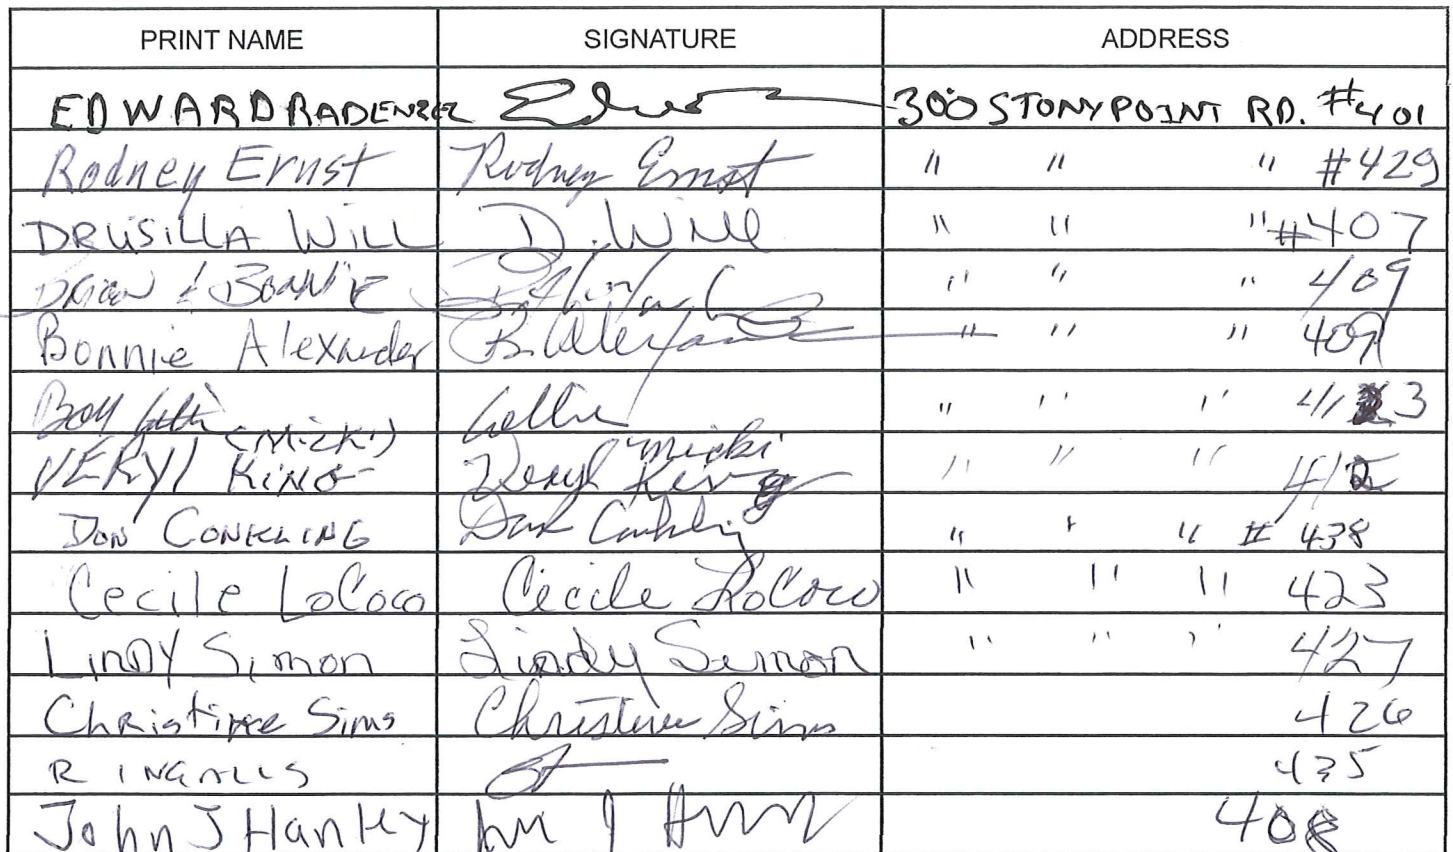 PRINT NAME SIGNATURE ADDRESS
EDWARD RADENZEL 300 STONYPOINT RD. #401
Rodney Ernst Rodney Ernst " " " #429
DRUSILLA WILL D. Will " " " #407
BRIAN & BONNIE " " " 409
Bonnie Alexander B. Alexander " " " 409
" " " 413
VERYL (MICKI) KING Veryl Micki King " " " 412
DON CONKLING Don Conkling " " " # 438
Cecile LoCoco Cecile LoCoco " " " 423
LINDY Simon Lindy Simon " " " 427
Christine Sims Christine Sims 426
R INGALLS 435
John J Hanley 408